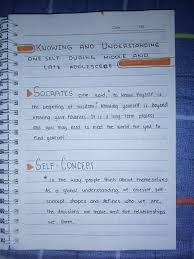 KNOWING AND UNDERSTANDING
ONESELF DURING MIDDLE AND
LATE ADOLESCENCE
SOCRATES once said, "to know thyself is
the beginning of wisdom." Knowing yourself is beyond
knowing your favorites. It is a long term process
and you may need to read the world for you to
find yourself.
SELF-CONCEPT
is the way people think about themselves
As a global understanding of oneself self-
concept shapes and defines who we are,
the decisions we make and the relationships
we form.